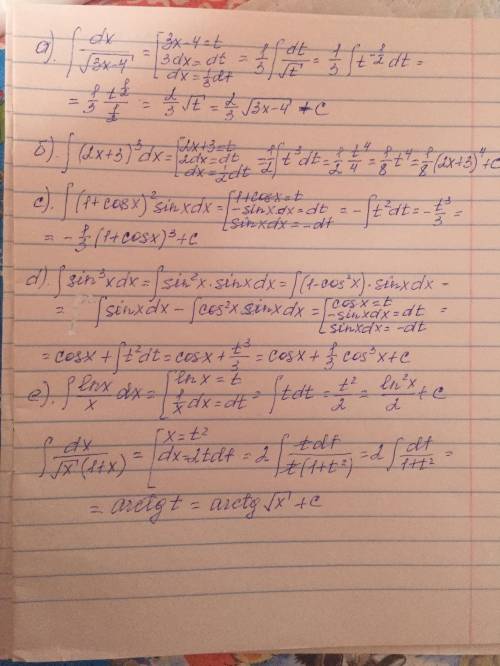 а). ∫ dx/√(3x-4) = [3x-4=t; 3dx=dt; dx=1/3 dt = 1/3 ∫ dt/√t = 1/3 ∫ t^(-1/2) dt =
= 1/3 t^(1/2)/(1/2) = 2/3 √t = 2/3 √(3x-4) + C
б). ∫ (2x+3)³dx = [2x+3=t; 2dx=dt; dx=1/2 dt = 1/2 ∫ t³dt = 1/2 t⁴/4 = 1/8 t⁴ = 1/8 (2x+3)⁴+C
c). ∫ (1+cosx)² sinxdx = [1+cosx=t; -sinxdx=dt; sinxdx=-dt = -∫ t²dt = -t³/3 =
= -1/3 (1+cosx)³+C
d). ∫ sin³xdx = ∫ sin²x·sinxdx = ∫ (1-cos²x)·sinxdx -
= ∫ sinxdx - ∫ cos²x sinxdx = [cosx=t; -sinxdx=dt; sinxdx=-dt =
= cosx + ∫ t²dt = cosx + t³/3 = cosx + 1/3 cos³x+C
e). ∫ lnx/x dx = [lnx=t; 1/x dx=dt = ∫ tdt = t²/2 = ln²x/2 + C
∫ dx/(√x (1+x)) = [x=t²; dx=2tdt = 2 ∫ tdt/(t(1+t²)) = 2 ∫ dt/(1+t²) =
= arctg t = arctg √x + C